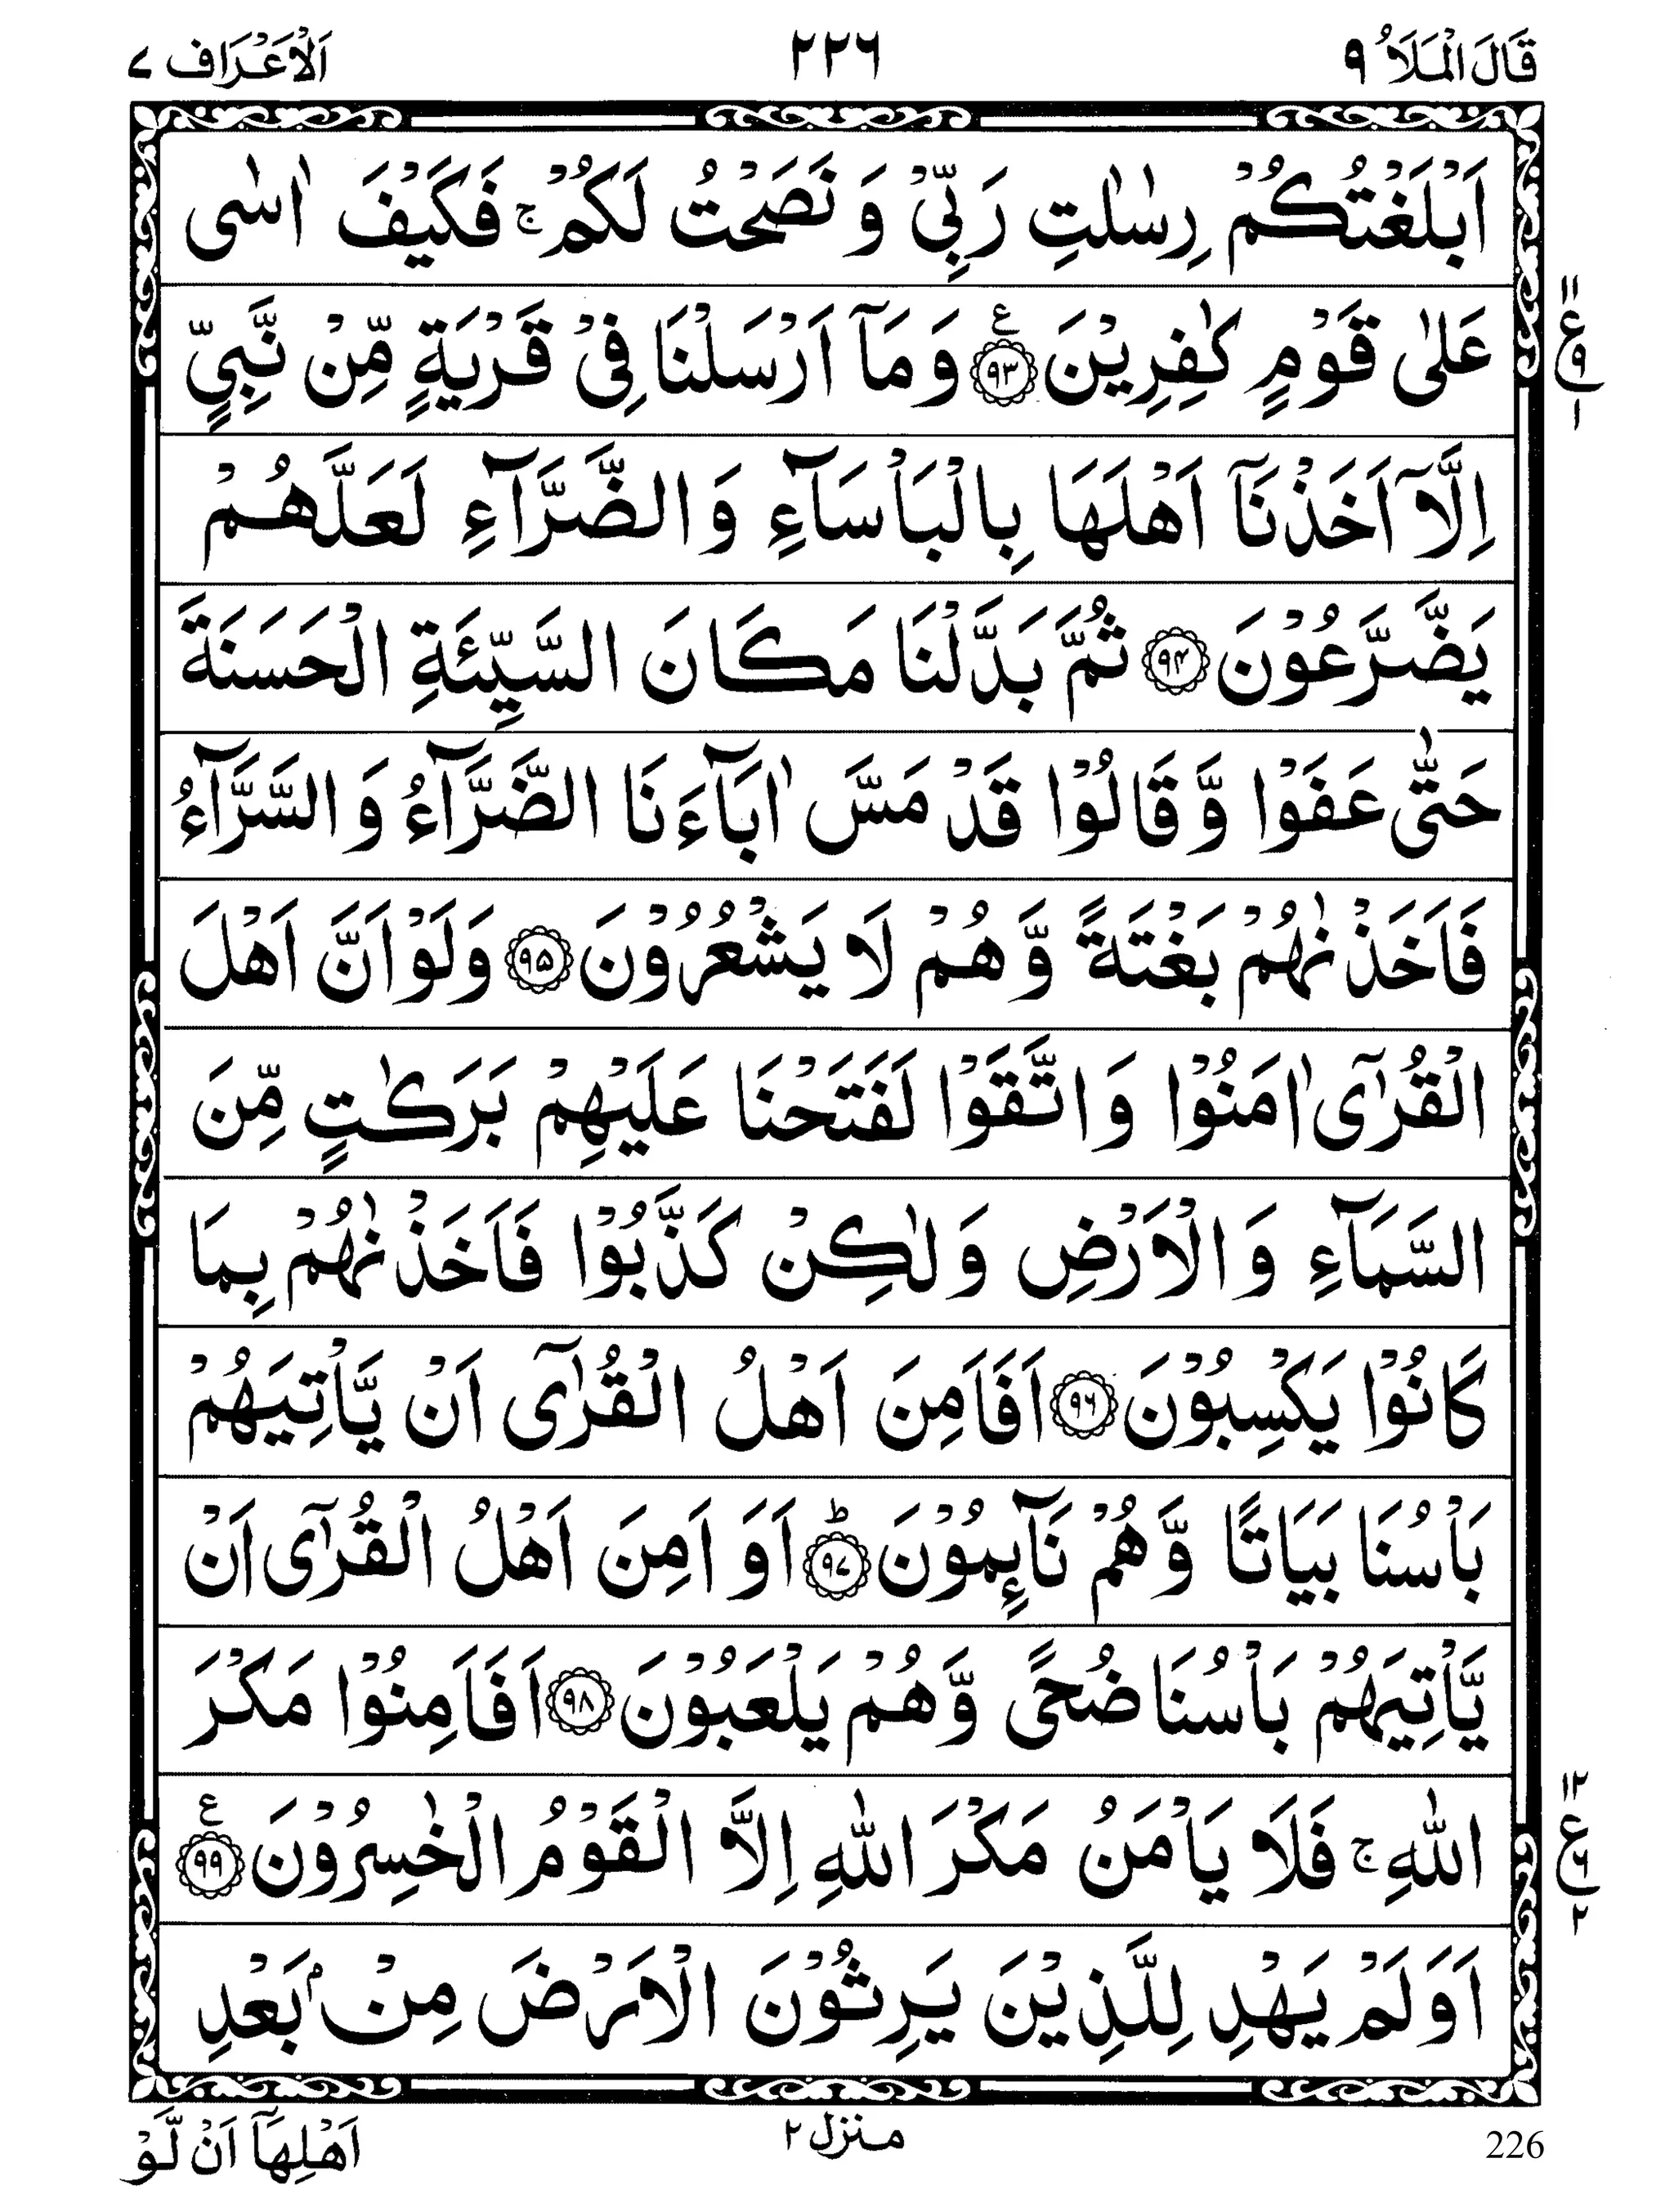 قَالَ الْمَلَاُ ٩
٢٢٦
اَلْاَعْرَاف ٧
اَبْلَغْتُكُمْ رِسٰلٰتِ رَبِّيْ وَ نَصَحْتُ لَكُمْ ۚ فَكَيْفَ اٰسٰى
عَلٰى قَوْمٍ كٰفِرِيْنَ ۧ ﴿٩٣﴾ وَ مَآ اَرْسَلْنَا فِيْ قَرْيَةٍ مِّنْ نَّبِيٍّ
١١
ع
٩
١
اِلَّآ اَخَذْنَآ اَهْلَهَا بِالْبَاْسَآءِ وَ الضَّرَّآءِ لَعَلَّهُمْ
يَضَّرَّعُوْنَ ﴿٩٤﴾ ثُمَّ بَدَّلْنَا مَكَانَ السَّيِّئَةِ الْحَسَنَةَ
حَتّٰى عَفَوْا وَّ قَالُوْا قَدْ مَسَّ اٰبَآءَنَا الضَّرَّآءُ وَ السَّرَّآءُ
فَاَخَذْنٰهُمْ بَغْتَةً وَّ هُمْ لَا يَشْعُرُوْنَ ﴿٩٥﴾ وَلَوْ اَنَّ اَهْلَ
الْقُرٰٓى اٰمَنُوْا وَ اتَّقَوْا لَفَتَحْنَا عَلَيْهِمْ بَرَكٰتٍ مِّنَ
السَّمَآءِ وَ الْاَرْضِ وَلٰكِنْ كَذَّبُوْا فَاَخَذْنٰهُمْ بِمَا
كَانُوْا يَكْسِبُوْنَ ﴿٩٦﴾ اَفَاَمِنَ اَهْلُ الْقُرٰٓى اَنْ يَّاْتِيَهُمْ
بَاْسُنَا بَيَاتًا وَّ هُمْ نَآئِمُوْنَ ؕ ﴿٩٧﴾ اَوَ اَمِنَ اَهْلُ الْقُرٰٓى اَنْ
يَّاْتِيَهُمْ بَاْسُنَا ضُحًى وَّ هُمْ يَلْعَبُوْنَ ﴿٩٨﴾ اَفَاَمِنُوْا مَكْرَ
اللّٰهِ ۚ فَلَا يَاْمَنُ مَكْرَ اللّٰهِ اِلَّا الْقَوْمُ الْخٰسِرُوْنَ ۧ ﴿٩٩﴾
١٢
ع
٦
٢
اَوَلَمْ يَهْدِ لِلَّذِيْنَ يَرِثُوْنَ الْاَرْضَ مِنْۢ بَعْدِ
اَهْلِهَآ اَنْ لَّوْ
منزل ٢
226